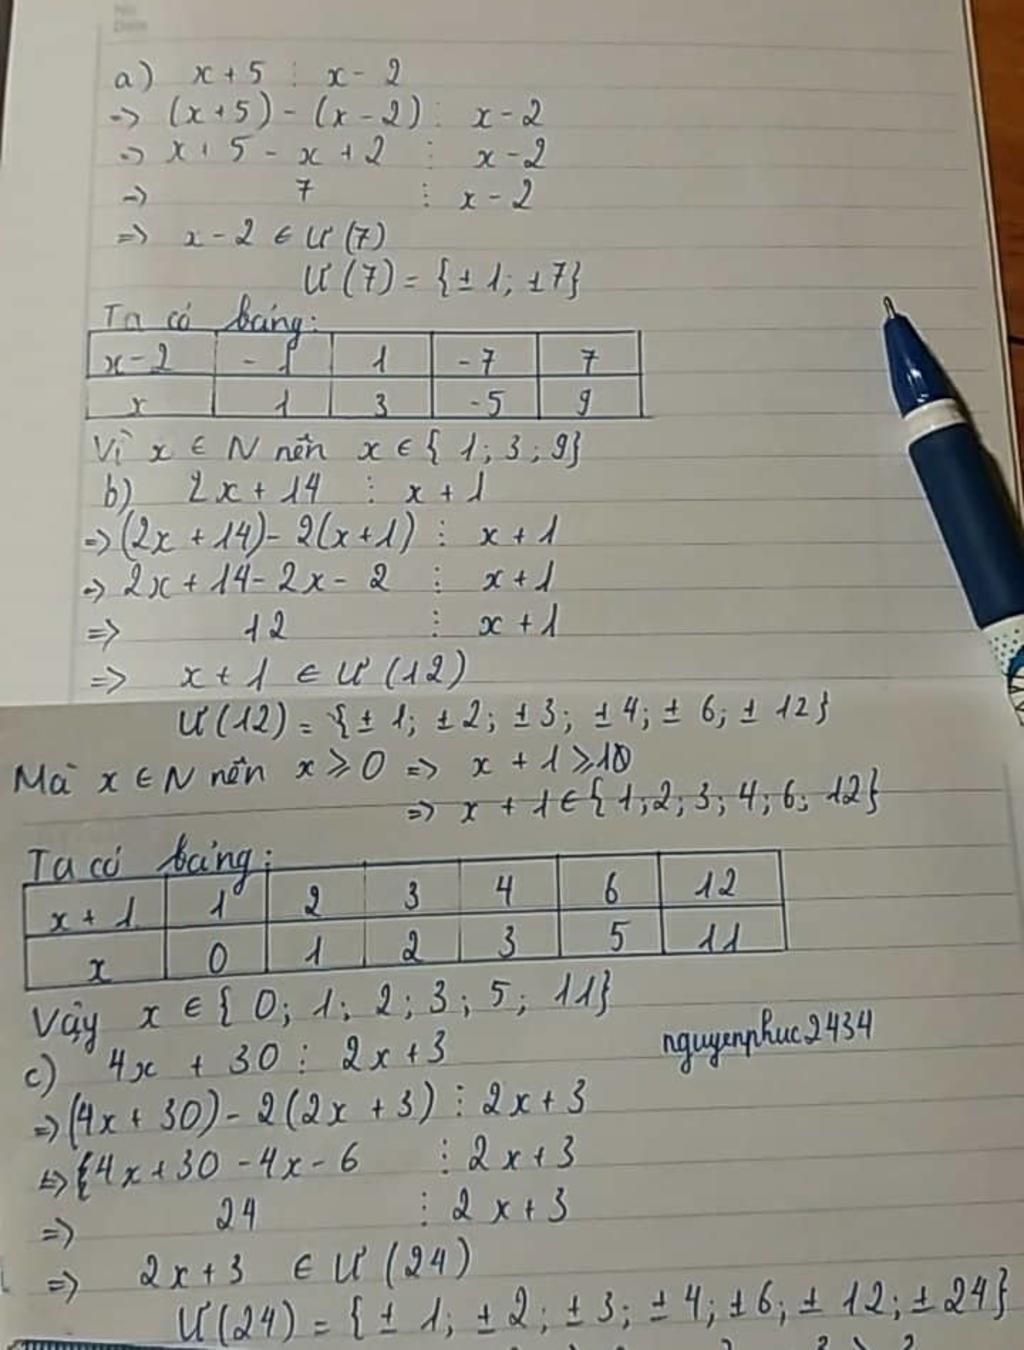 a) x + 5 ⋮ x - 2
=> (x+5) - (x-2) ⋮ x-2
=> x+5 - x + 2 ⋮ x-2
=> 7 ⋮ x-2
=> x-2 ∈ Ư(7)
Ư(7) = {±1; ±7}
Ta có bảng:
x-2 -1 1 -7 7
x 1 3 -5 9
Vì x ∈ N nên x ∈ {1; 3; 9}
b) 2x+14 ⋮ x+1
=> (2x+14) - 2(x+1) ⋮ x+1
=> 2x+14-2x-2 ⋮ x+1
=> 12 ⋮ x+1
=> x+1 ∈ Ư(12)
Ư(12) = {±1; ±2; ±3; ±4; ±6; ±12}
Mà x ∈ N nên x ≥ 0 => x + 1 ≥ 10
=> x + 1 ∈ {1; 2; 3; 4; 6; 12}
Ta có bảng:
x+1 1 2 3 4 6 12
x 0 1 2 3 5 11
Vậy x ∈ {0; 1; 2; 3; 5; 11}
nguyenphuc2434
c) 4x + 30 ⋮ 2x+3
=> (4x+30) - 2(2x+3) ⋮ 2x+3
=> 4x+30-4x-6 ⋮ 2x+3
=> 24 ⋮ 2x+3
=> 2x+3 ∈ Ư(24)
Ư(24) = {±1; ±2; ±3; ±4; ±6; ±12; ±24}